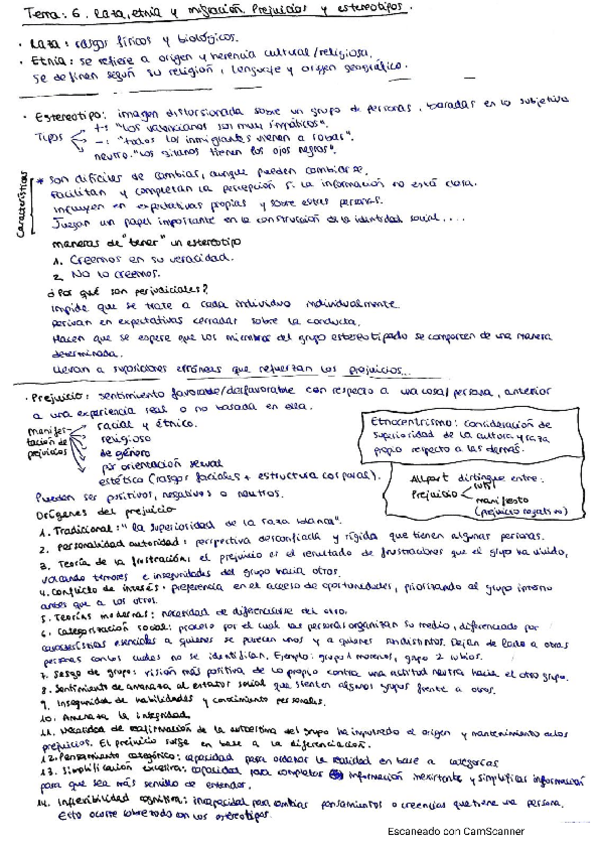 Tema: 6. Raza, etnia y migración. Prejuicios y estereotipos.
· Raza: rasgos físicos y biológicos.
· Etnia: se refiere a origen y herencia cultural/religiosa,
se definen según su religión, lenguaje y origen geográfico.
· Estereotipo: imagen distorsionada sobre un grupo de personas, basadas en lo subjetivo
Tipos
+: "Los valencianos son muy simpáticos".
-: "todos los inmigrantes vienen a robar".
neutro: "Los gitanos tienen los ojos negros".
Características
* Son difíciles de cambiar, aunque pueden cambiarse.
Facilitan y completan la percepción si la información no está clara.
Influyen en expectativas propias y sobre estres personas.
Juegan un papel importante en la construcción de la identidad social....
maneras de "tener" un estereotipo
1. Creemos en su veracidad.
2. No lo creemos.
¿Por qué son perjudiciales?
Impide que se trate a cada individuo individualmente
Derivan en expectativas cerradas sobre la conducta.
Hacen que se espere que los miembros del grupo estereotipado se comporten de una manera
determinada.
Llevan a suposiciones erróneas que refuerzan los prejuicios...
· Prejuicio: sentimiento favorable/desfavorable con respecto a una cosa/persona, anterior
a una experiencia real o no basada en ella.
manifes-
tación de
prejuicios
racial y étnico.
religioso
de género
por orientación sexual
estética (rasgos faciales + estructura corporal).
Etnocentrismo: consideración de
superioridad de la cultura y raza
propia respecto a las demás.
Allport distingue entre:
Prejuicio
sutil
manifiesto
(prejuicio negativo)
Pueden ser positivos, negativos o neutros.
Orígenes del prejuicio
1. Tradicional: "la superioridad de la raza blanca".
2. Personalidad autoridad: perspectiva desconfiada y rígida que tienen algunas personas.
3. Teoría de la frustración: el prejuicio es el resultado de frustraciones que el grupo ha vivido,
volcando temores e inseguridades del grupo hacia otros.
4. Conflicto de interés: preferencia en el acceso de oportunidades, priorizando al grupo interno
antes que a los otros.
5. Teorías modernas: necesidad de diferenciarse del otro.
6. Categorización social: proceso por el cual las personas organizan su medio, diferenciado por
características esenciales a quienes se parecen unos y a quienes son distintos. Dejan de lado a otras
personas con los cuales no se identifican. Ejemplo: grupo 1 morenos, grupo 2 rubios.
7. Sesgo de grupo: visión más positiva de lo propio contra una actitud neutra hacia el otro grupo.
8. Sentimiento de amenaza al estatus social que sienten algunos grupos frente a otros.
9. Inseguridad de habilidades y conocimiento personales.
10. Amenaza la integridad.
11. Necesidad de reafirmación de la autoestima del grupo ha impulsado el origen y mantenimiento a los
prejuicios. El prejuicio surge en base a la diferenciación.
12. Pensamiento categórico: capacidad para ordenar la realidad en base a categorías
13. Simplificación excesiva: capacidad para completar información inexistente y simplificar información
para que sea más sencillo de entender.
14. Inflexibilidad cognitiva: incapacidad para cambiar pensamientos o creencias que tiene una persona.
Esto ocurre sobre todo con los estereotipos.
Escaneado con CamScanner